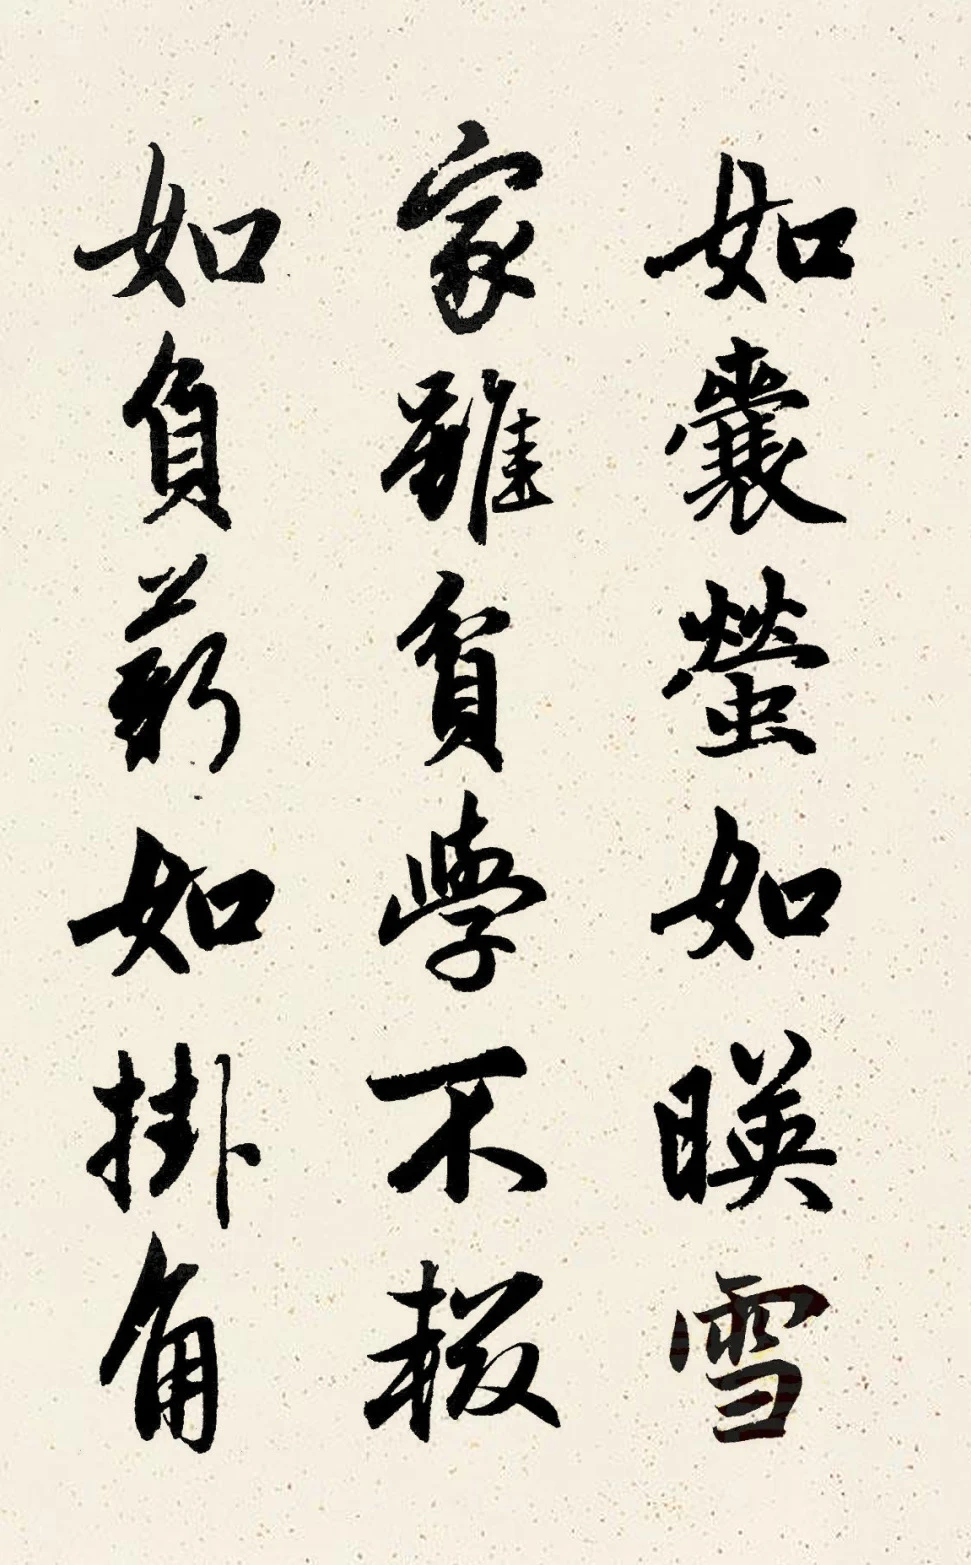 如囊螢如暎雪
家雖貧學不輟
如負薪如掛角